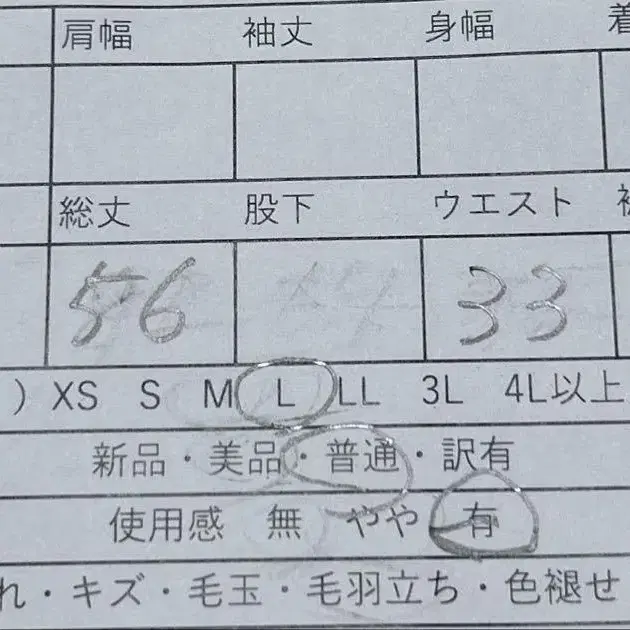 肩幅 袖丈 身幅 着
総丈 股下 ウエスト
56 33
) XS S M L LL 3L 4L以上
新品・美品・普通・訳有
使用感 無 やや 有
れ・キズ・毛玉・毛羽立ち・色褪せ